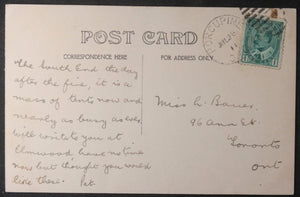 POST CARD
CORRESPONDENCE HERE
FOR ADDRESS ONLY.
PORCUPINE
The South End the day
after the fire, it is a
mass of tents now and
nearly as busy as ever.
Will write you at
Elmwood have no time
now but thought you would
like these. Pat.
Miss L.
96 Ann St.
Toronto
Ont